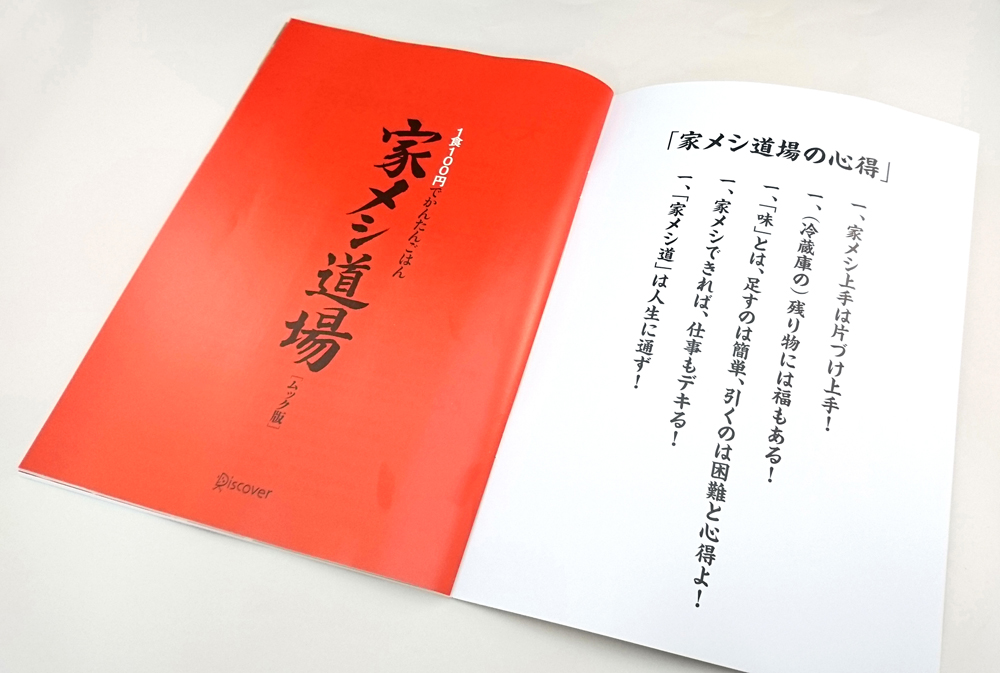 1食100円でかんたんごはん
家メシ道場
[ムック版]
Discover
「家メシ道場の心得」
一、家メシ上手は片づけ上手！
一、（冷蔵庫の）残り物には福もある！
一、「味」とは、足すのは簡単、引くのは困難と心得よ！
一、家メシできれば、仕事もデキる！
一、「家メシ道」は人生に通ず！